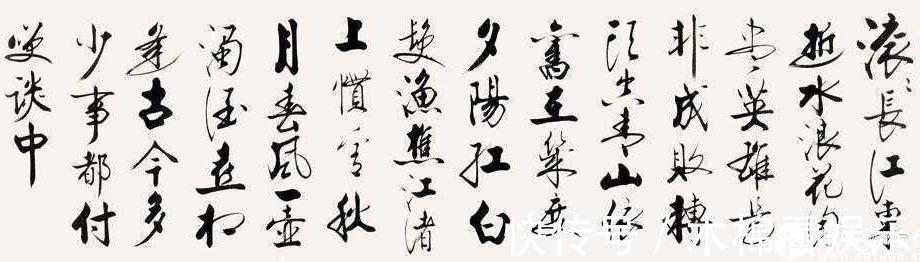 滚〻長江東
逝水浪花淘
盡英雄是
非成敗轉
頭空青山依
舊在幾度
夕陽紅白
髮漁樵江渚
上慣看秋
月春風一壺
濁酒喜相
逢古今多
少事都付
笑談中
快传号 / 木棉娱乐